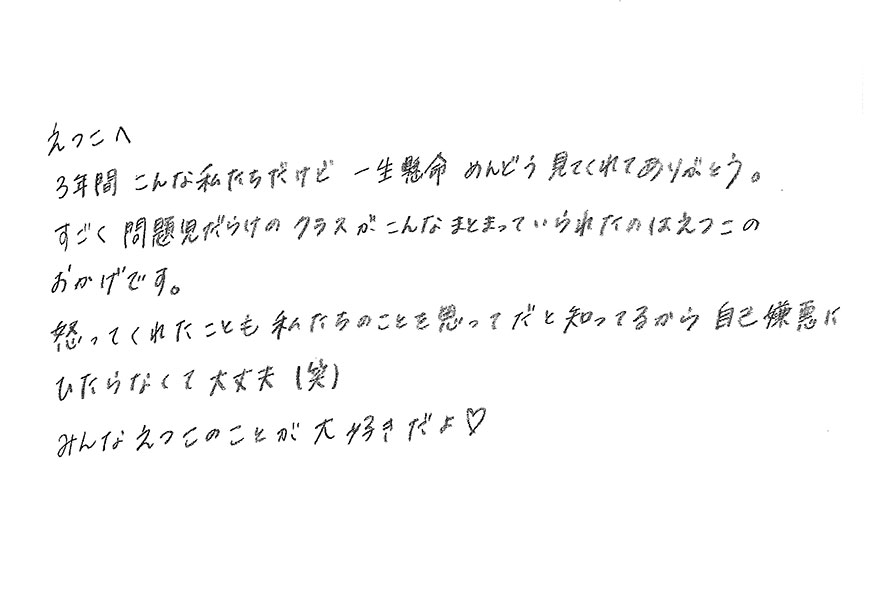 えつこへ
3年間 こんな私たちだけど 一生懸命 めんどう見てくれてありがとう。
すごく 問題児だらけの クラスが こんなまとまっていられたのはえつこの
おかげです。
怒ってくれたことも 私たちのことを思ってだと知ってるから 自己嫌悪に
ひたらなくて 大丈夫 (笑)
みんなえつこのことが大好きだよ♡